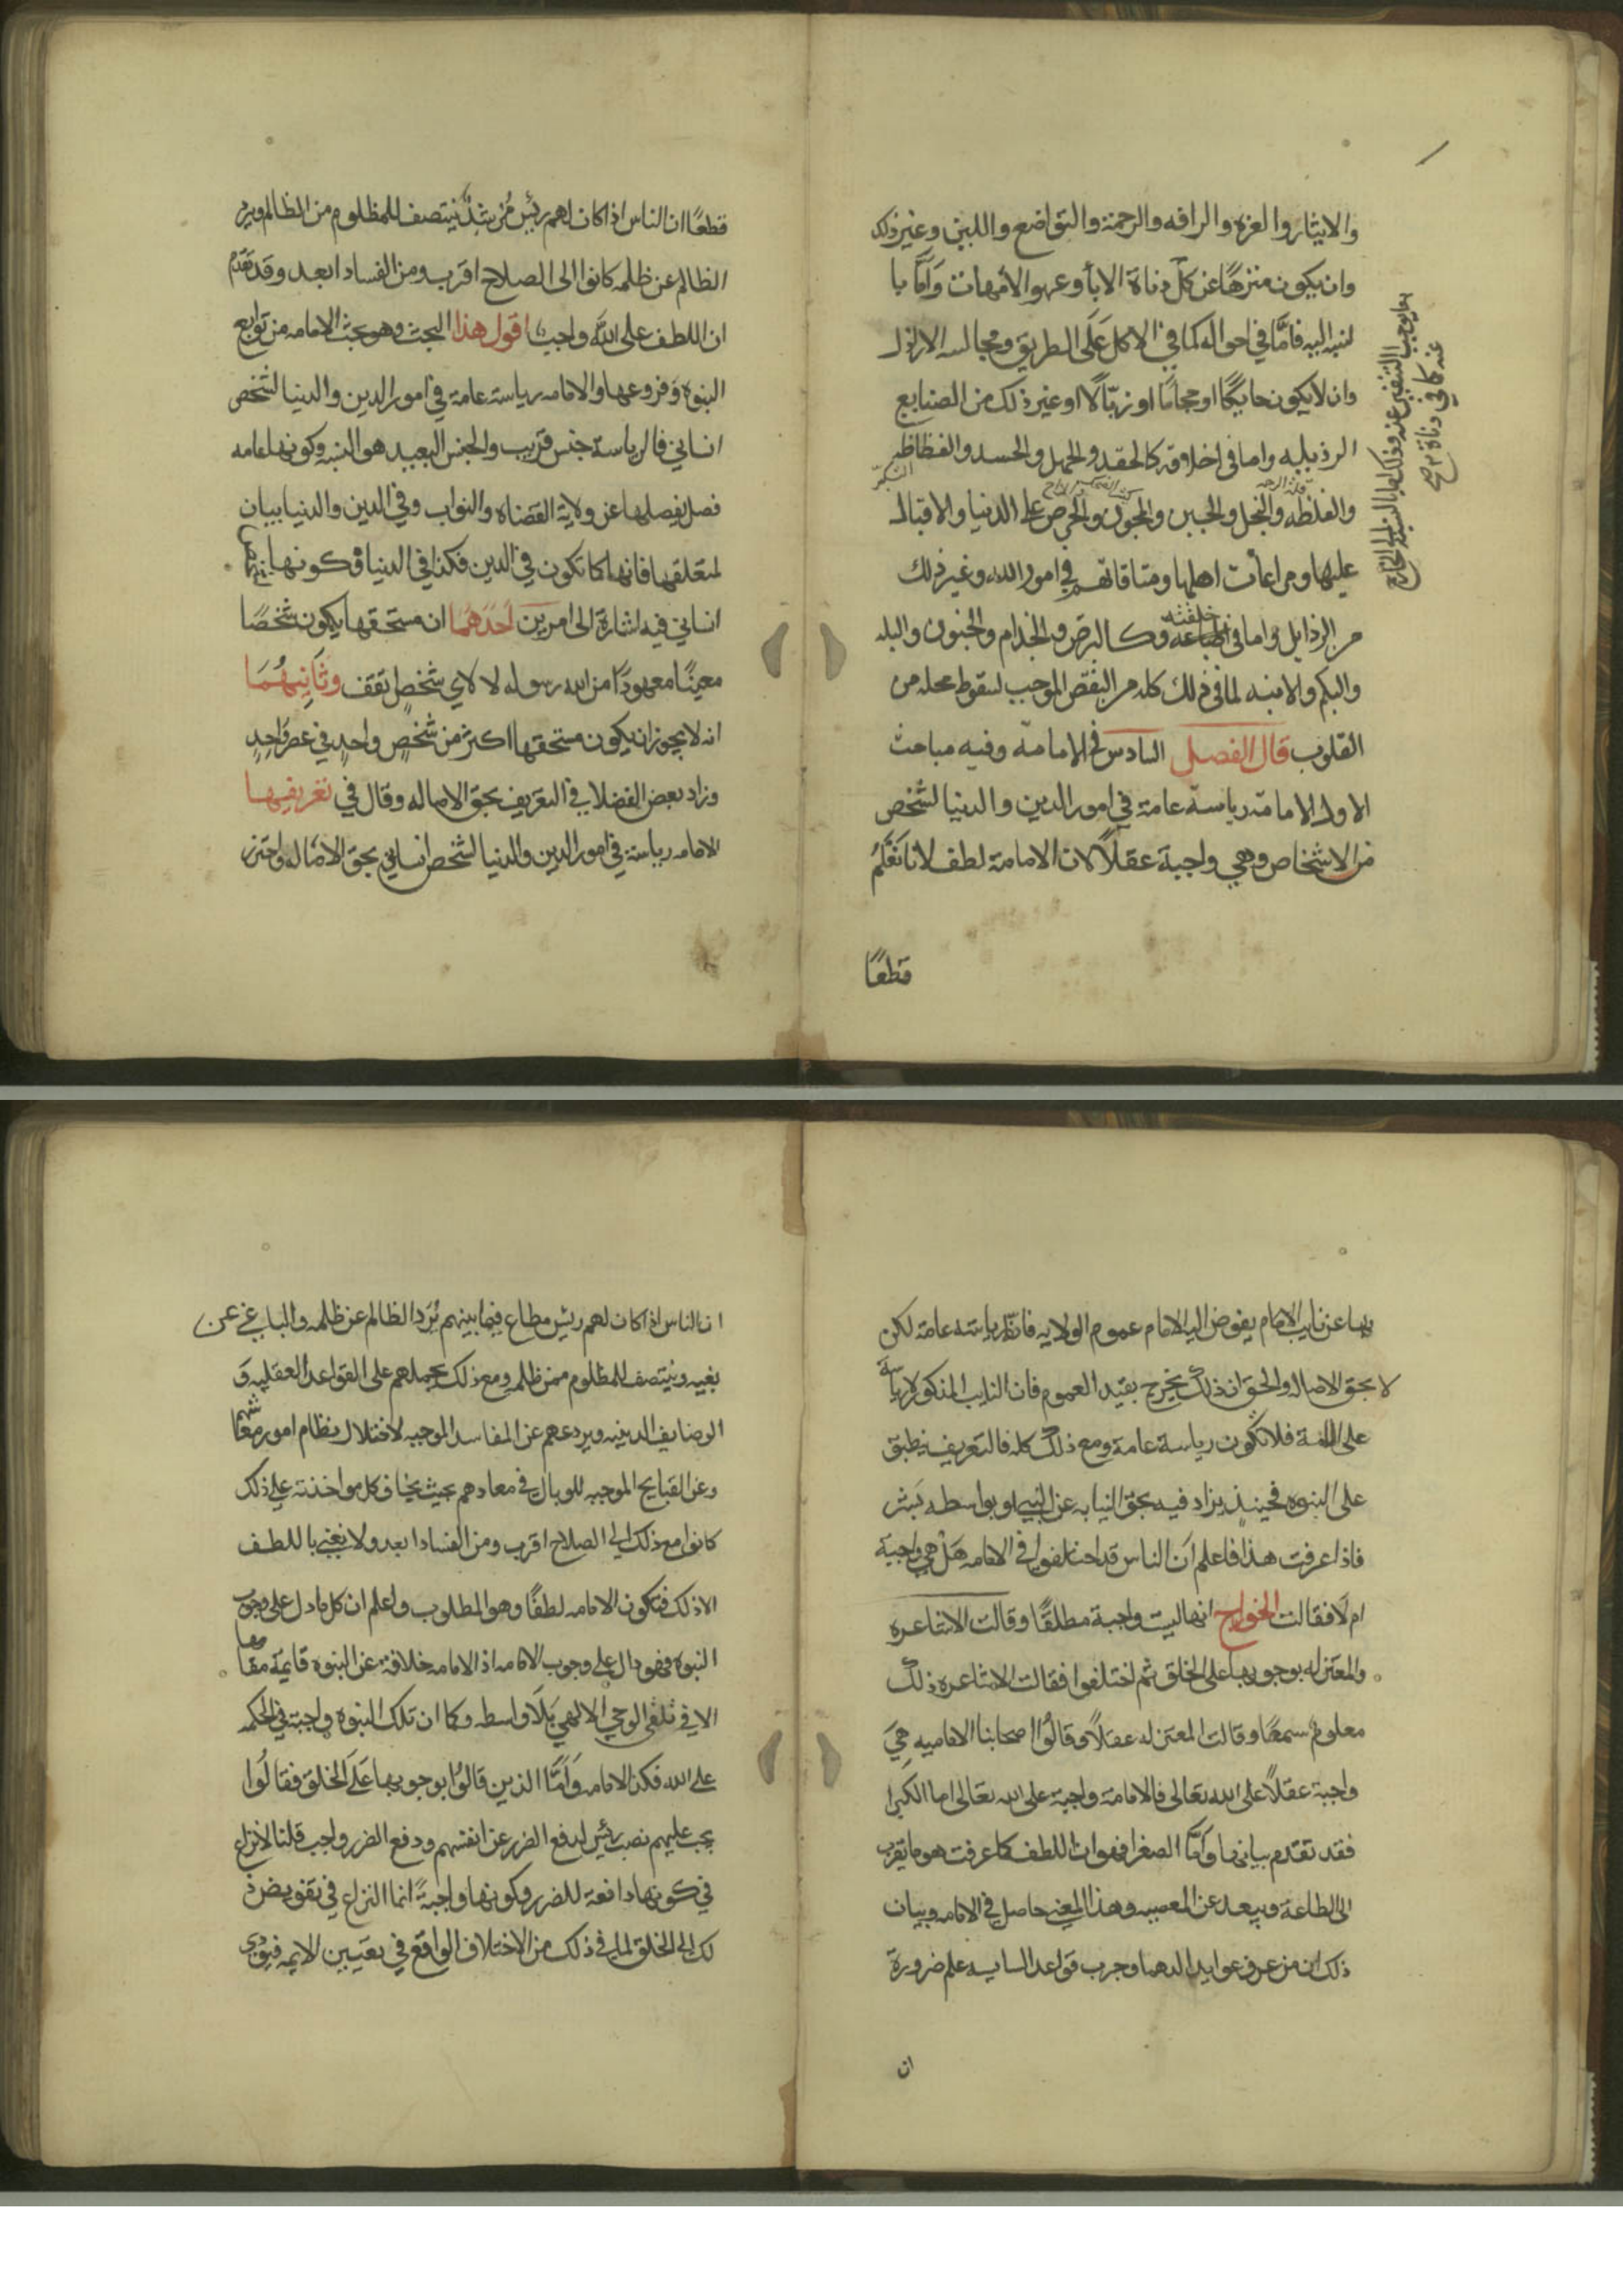 والايثار والعزة والرافه والرحمة والتواضع واللين وغير ذلك
وان يكون منزهًا عن كل دناة الابأ وعهر الامهات وَامَّا با
لنسبه اليه فامَّا في احواله كما في الاكل عَلَى الطريق ومجالسه الارذال
وان لا يكون حايكًا او حجامًا او زبّالًا او غير ذلك من الصنايع
الرذيليه واما في اخلاقه كالحقد والجهل والحسد والفظاظه
التكبر
والغلظه والبخل والجبن والمجون والحرص على الدنيا والاقبال
عليها ومراعات اهلها ومتاقاتهم في امور الله وغير ذلك
من الرذايل واما في طباعه خلقته فكالبرص والجذام والجنون والبله
والبكم والابنه لما في ذلك كله من النقص الموجب لسقوط محله من
القلوب قال الفصل السادس في الامامة وفيه مباحث
الاول الامامة رياسة عامة في امور الدين والدنيا لشخص
من الاشخاص وهي واجبة عقلًا لان الامامة لطف لانا نَعْلَمُ
قطعًا
عنه كما في دناة
قطعًا ان الناس اذا كان لهم رئيس مُرشدٌ ينتصف للمظلوم من الظالم ويرد
الظالم عن ظلمه كانوا الى الصلاح اقرب ومن الفساد ابعد وقد تقدم
ان اللطف على الله واجب اقول هذا البحث وهو بحث الامامه من توابع
النبوه وفروعها والامامه رياسة عامة في امور الدين والدنيا لشخص
انساني فالرياسة جنس قريب والجنس البعيد هو النسبه وكونها عامه
فصل يفصلها عن ولاية القضاه والنواب وفي الدين والدنيا بيان
لمتعلقها فانها كما تكون في الدين فكذا في الدنيا وكونها لشخص
انساني فيه اشارة الى امرين اَحَدهُمَا ان مستحقها يكون شخصًا
معينًا معهودًا من الله رسوله لا لاي شخصٍ اتفق وثَانِيهُمَا
انه لا يجوز ان يكون مستحقها اكثر من شخصٍ واحدٍ في عصرٍ وَاحِدٍ
وزاد بعض الفضلا في التعريف بحق الاصاله وقال في تعريفها
الامامه رياسة في امور الدين والدنيا لشخص انساني بحق الاصاله واحترز
بها عن نايب الامام يفوض اليه الامام عموم الولايه فان رياسته عامه لكن
لا بحق الاصاله والحق ان ذلك يخرج بقيد العموم فان النايب المذكور لا رياسة
على فلا تكون رياسة عامة ومع ذلك كله فالتعريف ينطبق
على النبوه فحينئذٍ يزاد فيه بحق النيابه عن النبي او بواسطه بَشَر
فاذا عرفت هذا فاعلم اَن الناس قد اختلفوا في الامامه هَلْ هي واجبة
ام لَا فقالت الخوارج انها ليست واجبة مطلقًا وقالت الاشاعره
والمعتزله بوجوبها على الخلق ثم اختلفوا فقالت الاشاعره ذلك
معلوم سمعًا وقالت المعتزله عقلًا وقالُوا اصحابنا الاماميه هِيَ
واجبة عقلًا على الله تعالى فالامامة واجبة على الله تعالى اما الكبرا
فقد تقدم بيانها وَامَّا الصغرا فهو ان اللطف كما عرفت هو ما يقرب
الى الطاعة ويبعد عن المعصيه وهذا المعنى حاصل في الامامه وبيان
ذلك ان من عرف عوايد الدهما وجرب قواعد السايسه علم ضرورةً
ان
ان الناس اذا كان لهم رئيس مطاع فيما بينهم يُرَد الظالم عن ظلمه والباغي عن
بغيه وينتصف للمظلوم ممن ظلمه ومع ذلك يحملهم على القواعد العقليه وَ
الوضايف الدينيه ويردعهم عن المفاسد الموجبه لاختلال نظام امور معاشهم
وعن القبايح الموجبه للوبال في معادهم بحيث يخاف كل مواخذته على ذلك
كانوا مع ذلك الى الصلاح اقرب ومن الفساد ابعد ولا يغني باللطف
الا ذلك فتكون الامامه لطفًا وهو المطلوب واعلم ان كل ما دل على وجوب
النبوه فهو دال على وجوب الامامه اذ الامامه خلافة عن النبوه قايمة مقامها
الا في تلقى الوحي الالهي بلَا واسطه وكما ان تلك النبوه واجبة في الحكمه
على الله فكذا الامامه وَامَّا الذين قالوُا بوجوبها عَلَى الخلق فقالُوا
يجب عليهم نصب رئيس لدفع الضرر عن انفسهم ودفع الضرر واجب قلنا لا نزاع
في كونها دافعة للضرر وكونها واجبةً انما النزاع في تفويض ذ
لك الى الخلق لما في ذلك من الاختلاف الواقع في تعيين الايمه فيودى